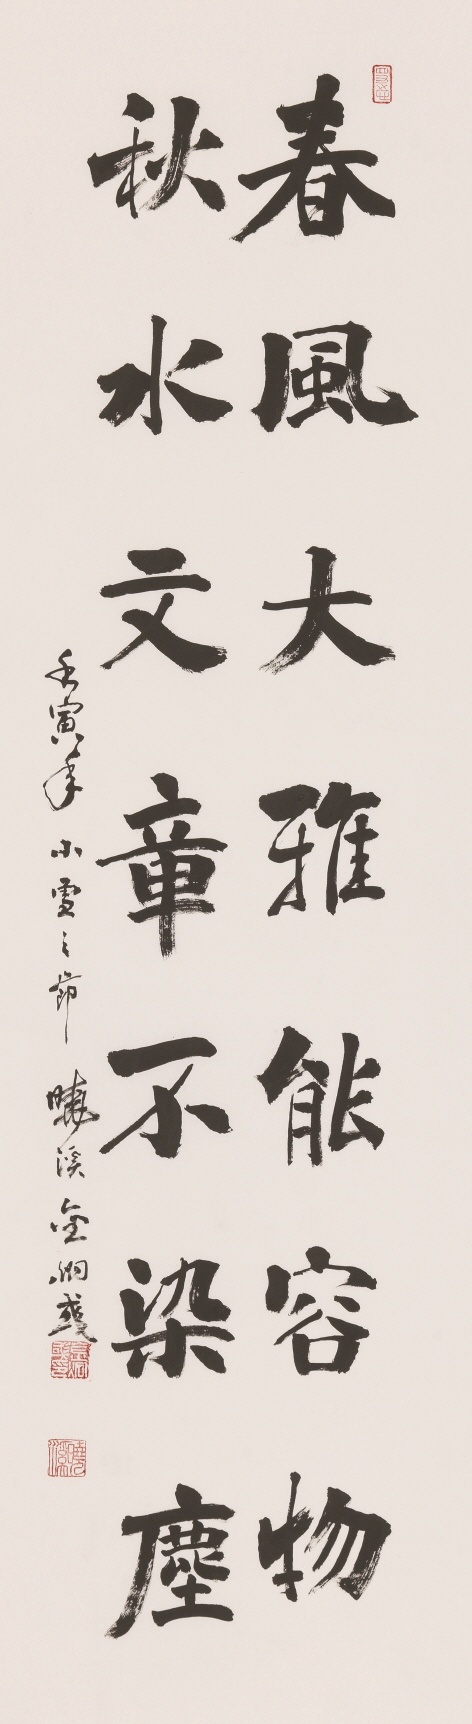 春風大雅能容物
秋水文章不染塵
壬寅年小雪之節 曉溪金炯或